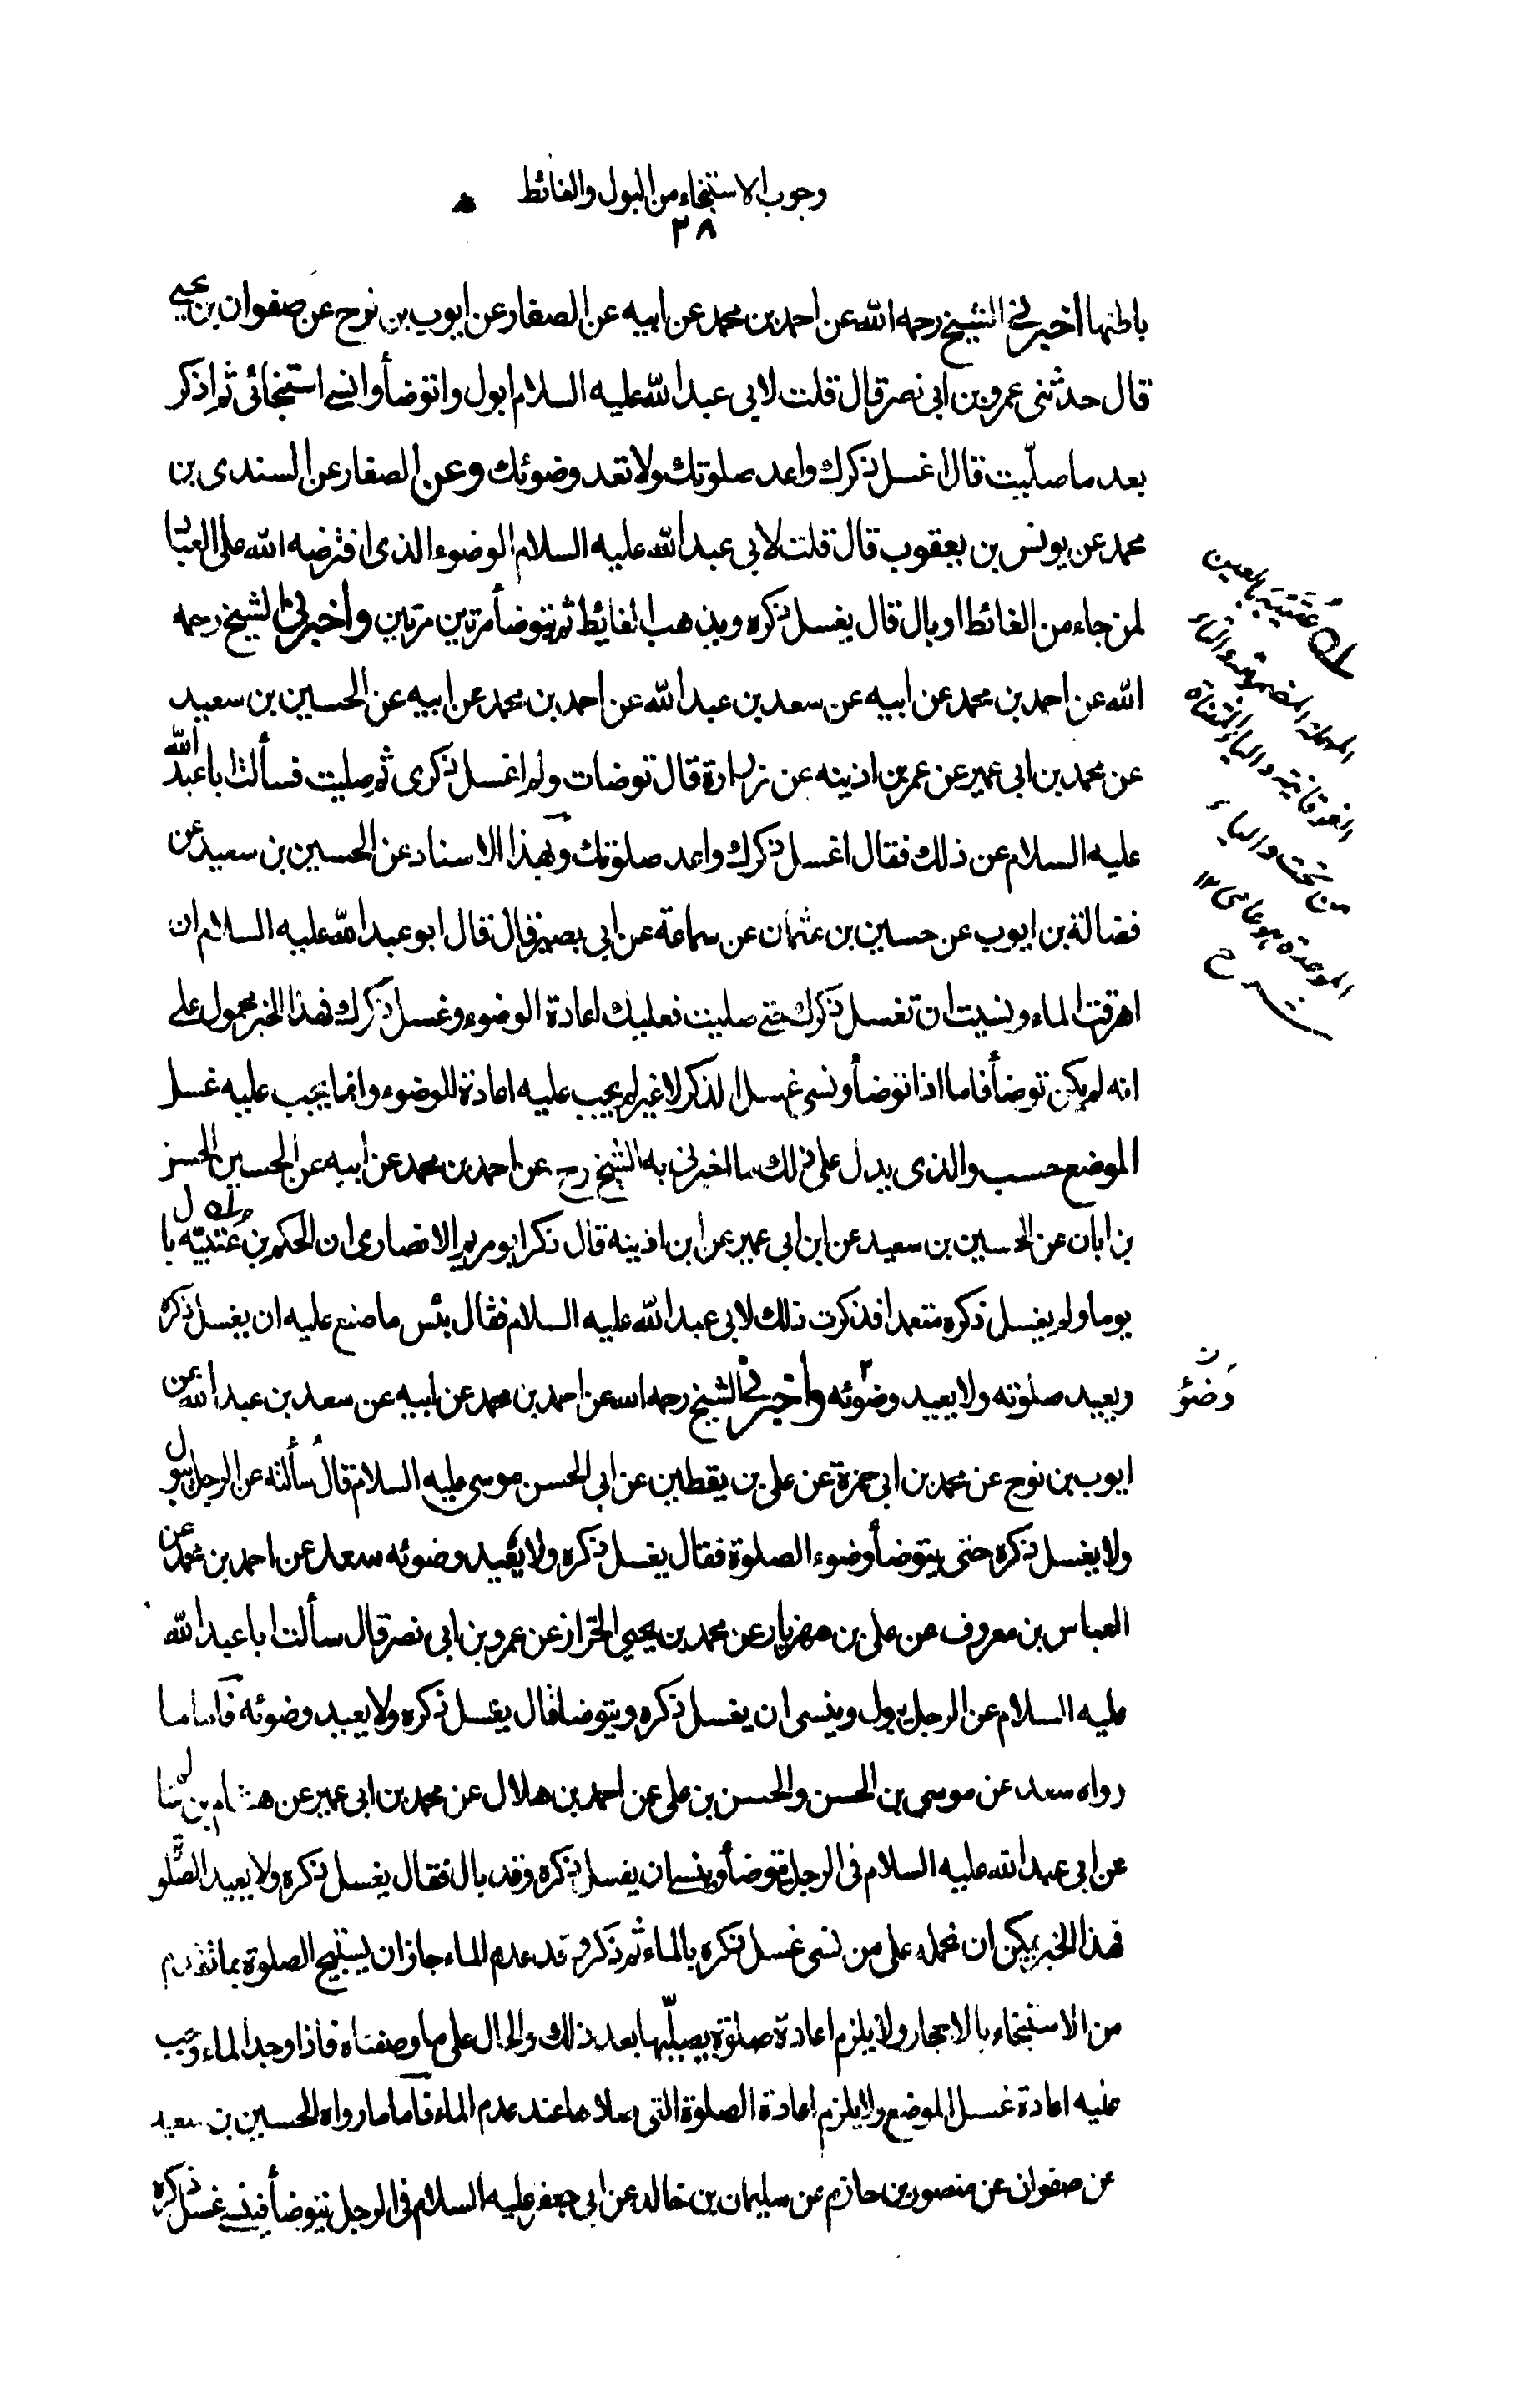 وجوب الاستنجاء من البول والغائط
۲۸
باطنها اخبرني الشيخ رحمه الله عن احمد بن محمد عن ابيه عن الصفار عن ايوب بن نوح عن صفوان بن يحيى
قال حدثنى عمرو بن ابى نصر قال قلت لابي عبد الله عليه السلام ابول واتوضأ وانسى استنجائى ثم اذكر
بعد ما صلّيت قال اغسل ذكرك واعد صلوتك ولا تعد وضوئك وعن الصفار عن السندى بن
محمد عن يونس بن يعقوب قال قلت لابي عبد الله عليه السلام الوضوء الذى افترضه الله على العباد
لمن جاء من الغائط او بال قال يغسل ذكره ويذهب الغائط ثم يتوضأ مرتين مرتين واخبرني الشيخ رحمه
الله عن احمد بن محمد عن ابيه عن سعد بن عبد الله عن احمد بن محمد عن ابيه عن الحسين بن سعيد
عن محمد بن ابي عمير عن عمر بن اذينه عن زرارة قال توضات ولم اغسل ذكرى ثم صليت فسألت ابا عبد الله
عليه السلام عن ذلك فقال اغسل ذكرك واعد صلوتك وبهذا الاسناد عن الحسين بن سعيد عن
فضالة بن ايوب عن حسين بن عثمان عن سماعة عن ابي بصير قال قال ابو عبد الله عليه السلام ان
اهرقت الماء ونسيت ان تغسل ذكرك حتى صليت فعليك اعادة الوضوء وغسل ذكرك فهذا الخبر محمول على
انه لم يكن توضأ فاما اذا توضأ ونسى غسل الذكر لا غير لم يجب عليه اعادة للوضوء وانما يجب عليه غسل
الموضع حسب والذى يدل على ذلك ما اخبرنى به الشيخ رح عن احمد بن محمد عن ابيه عن الحسين الحسن
بن ابان عن الحسين بن سعيد عن ابن ابي عمير عن ابن اذينه قال ذكر ابو مريم الانصارى ان الحكم بن عُتَيبَه بال
يوما ولم يغسل ذكره متعمدا فذكرت ذلك لابي عبد الله عليه السلام فقال بئس ما صنع عليه ان يغسل ذكره
ويعيد صلوته ولا يعيد وضوئه واخبرني الشيخ رحمه الله عن احمد بن محمد عن ابيه عن سعد بن عبد الله عن
ايوب بن نوح عن محمد بن ابي حمزة عن على بن يقطين عن ابي الحسن موسى عليه السلام قال سألته عن الرجل يبول
ولا يغسل ذكره حتى يتوضأ وضوء الصلوة فقال يغسل ذكره ولا يعيد وضوئه سعد عن احمد بن محمد عن
العباس بن معروف عن على بن مهزيار عن محمد بن يحيى الخزاز عن عمرو بن ابى نصر قال سألت ابا عبد الله
عليه السلام عن الرجل يبول وينسى ان يغسل ذكره ويتوضا قال يغسل ذكره ولا يعيد وضوئه فاما ما
رواه سعد عن موسى بن الحسن والحسن بن على عن احمد بن هلال عن محمد بن ابى عمير عن هشام بن سالم
عن ابي عبد الله عليه السلام فى الرجل يتوضأ وينسى ان يغسل ذكره وقد بال فقال يغسل ذكره ولا يعيد الصّلوة
فهذا الخبر يمكن ان نحمله على من نسى غسل ذكره بالماء ثم ذكر وقد عدم الماء جاز ان يستبيح الصلوة بما تقدم
من الاستنجاء بالاحجار ولا يلزم اعادة صلوة يصلّيها بعد ذلك والحال على ما وصفناه فاذا وجد الماء وجب
عليه اعادة غسل الموضع ولا يلزم اعادة الصلوة التى صلاها عند عدم الماء فاما ما رواه الحسين بن سعيد
عن صفوان عن منصور بن حازم عن سليمان بن خالد عن ابي جعفر عليه السلام فى الرجل يتوضأ فينسى غسل ذكره
عُتَيبَه بالعين
المهملة المضمومة والتاء
الفوقانية والياء المثناة
من تحت والباء
الموحدة هو عامى ۱۲
شرح
وضوء